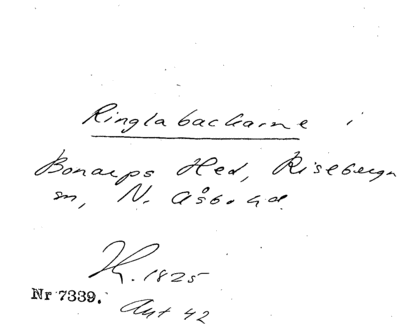 Ringlabackarne i
Bonarps Hed, Riseberga
sn, N. Åsbo hd.
1825
Nr 7339.
Ant 42